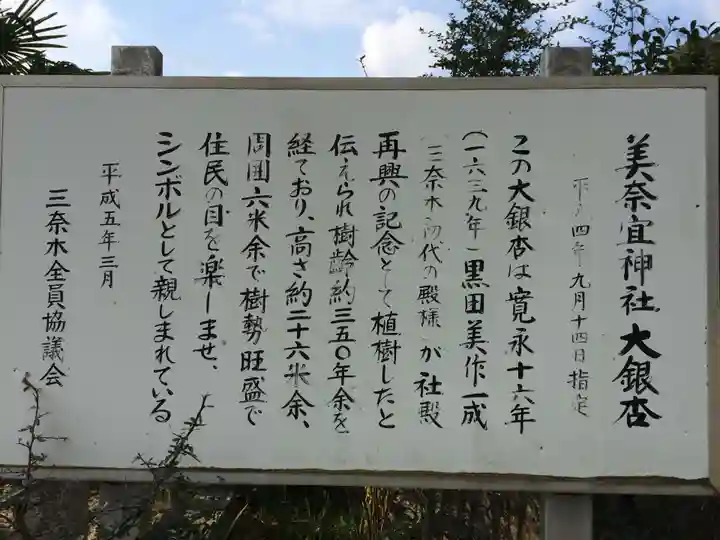 美奈宜神社 大銀杏
平成四年九月十四日指定
この大銀杏は寛永十六年
(一六三九年)黒田美作一成
(三奈木初代の殿様)が社殿
再興の記念として植樹したと
伝えられ樹齢約三五〇年余を
経ており、高さ約二十六米余、
周囲六米余で樹勢旺盛で
住民の目を楽しませ、
シンボルとして親しまれている
平成五年三月
三奈木全員協議会